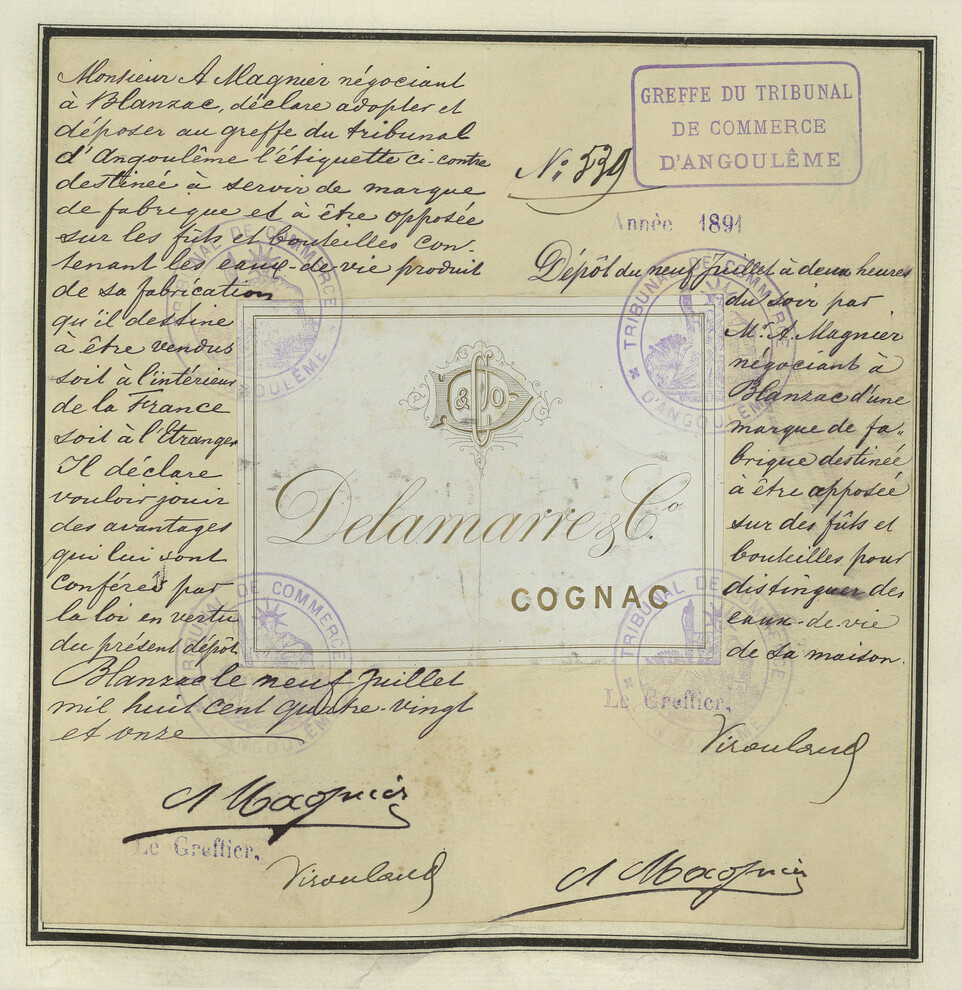 Monsieur A Magnier négociant
à Blanzac, déclare adopter et
déposer au greffe du tribunal
d'Angoulême l'étiquette ci-contre
destinée à servir de marque
de fabrique et à être opposée
sur les fûts et bouteilles con-
tenant les eaux-de-vie produit
de sa fabrication
qu'il destine
à être vendus
soit à l'intérieur
de la France
soit à l'Etranger
Il déclare
vouloir jouir
des avantages
qui lui sont
conférés par
la loi en vertu
du présent dépôt
Blanzac le neuf Juillet
mil huit cent quatre-vingt
et onze
A Magnier
Le Greffier,
Virouland
GREFFE DU TRIBUNAL
DE COMMERCE
D'ANGOULÊME
No 539
Année 1891
Dépôt du neuf Juillet à deux heures
du soir par
Mr A. Magnier
négociant à
Blanzac d'une
marque de fa-
brique destinée
à être apposée
sur des fûts et
bouteilles pour
distinguer des
eaux-de-vie
de sa maison.
Le Greffier,
Virouland
A Magnier
D & Co
Delamarre & Co.
COGNAC
TRIBUNAL DE COMMERCE
D'ANGOULÊME
TRIBUNAL DE COMMERCE
D'ANGOULÊME
TRIBUNAL DE COMMERCE
D'ANGOULÊME
TRIBUNAL DE COMMERCE
D'ANGOULÊME